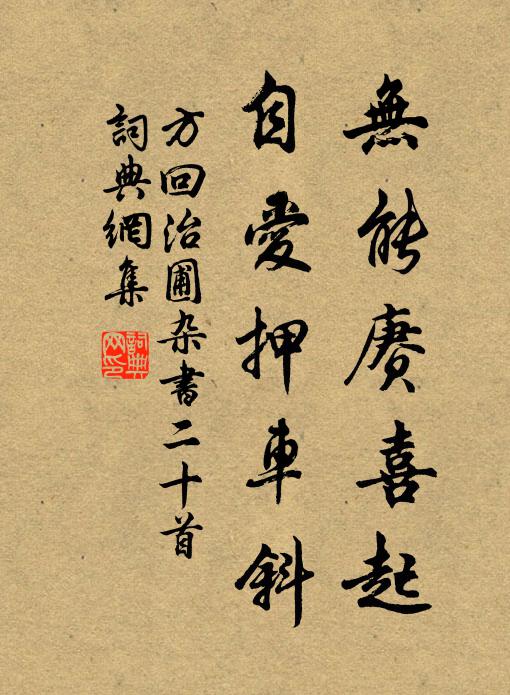 無能賡喜起
自愛押車斜
方回治圃杂書二十首
詞典網集
詞典網印